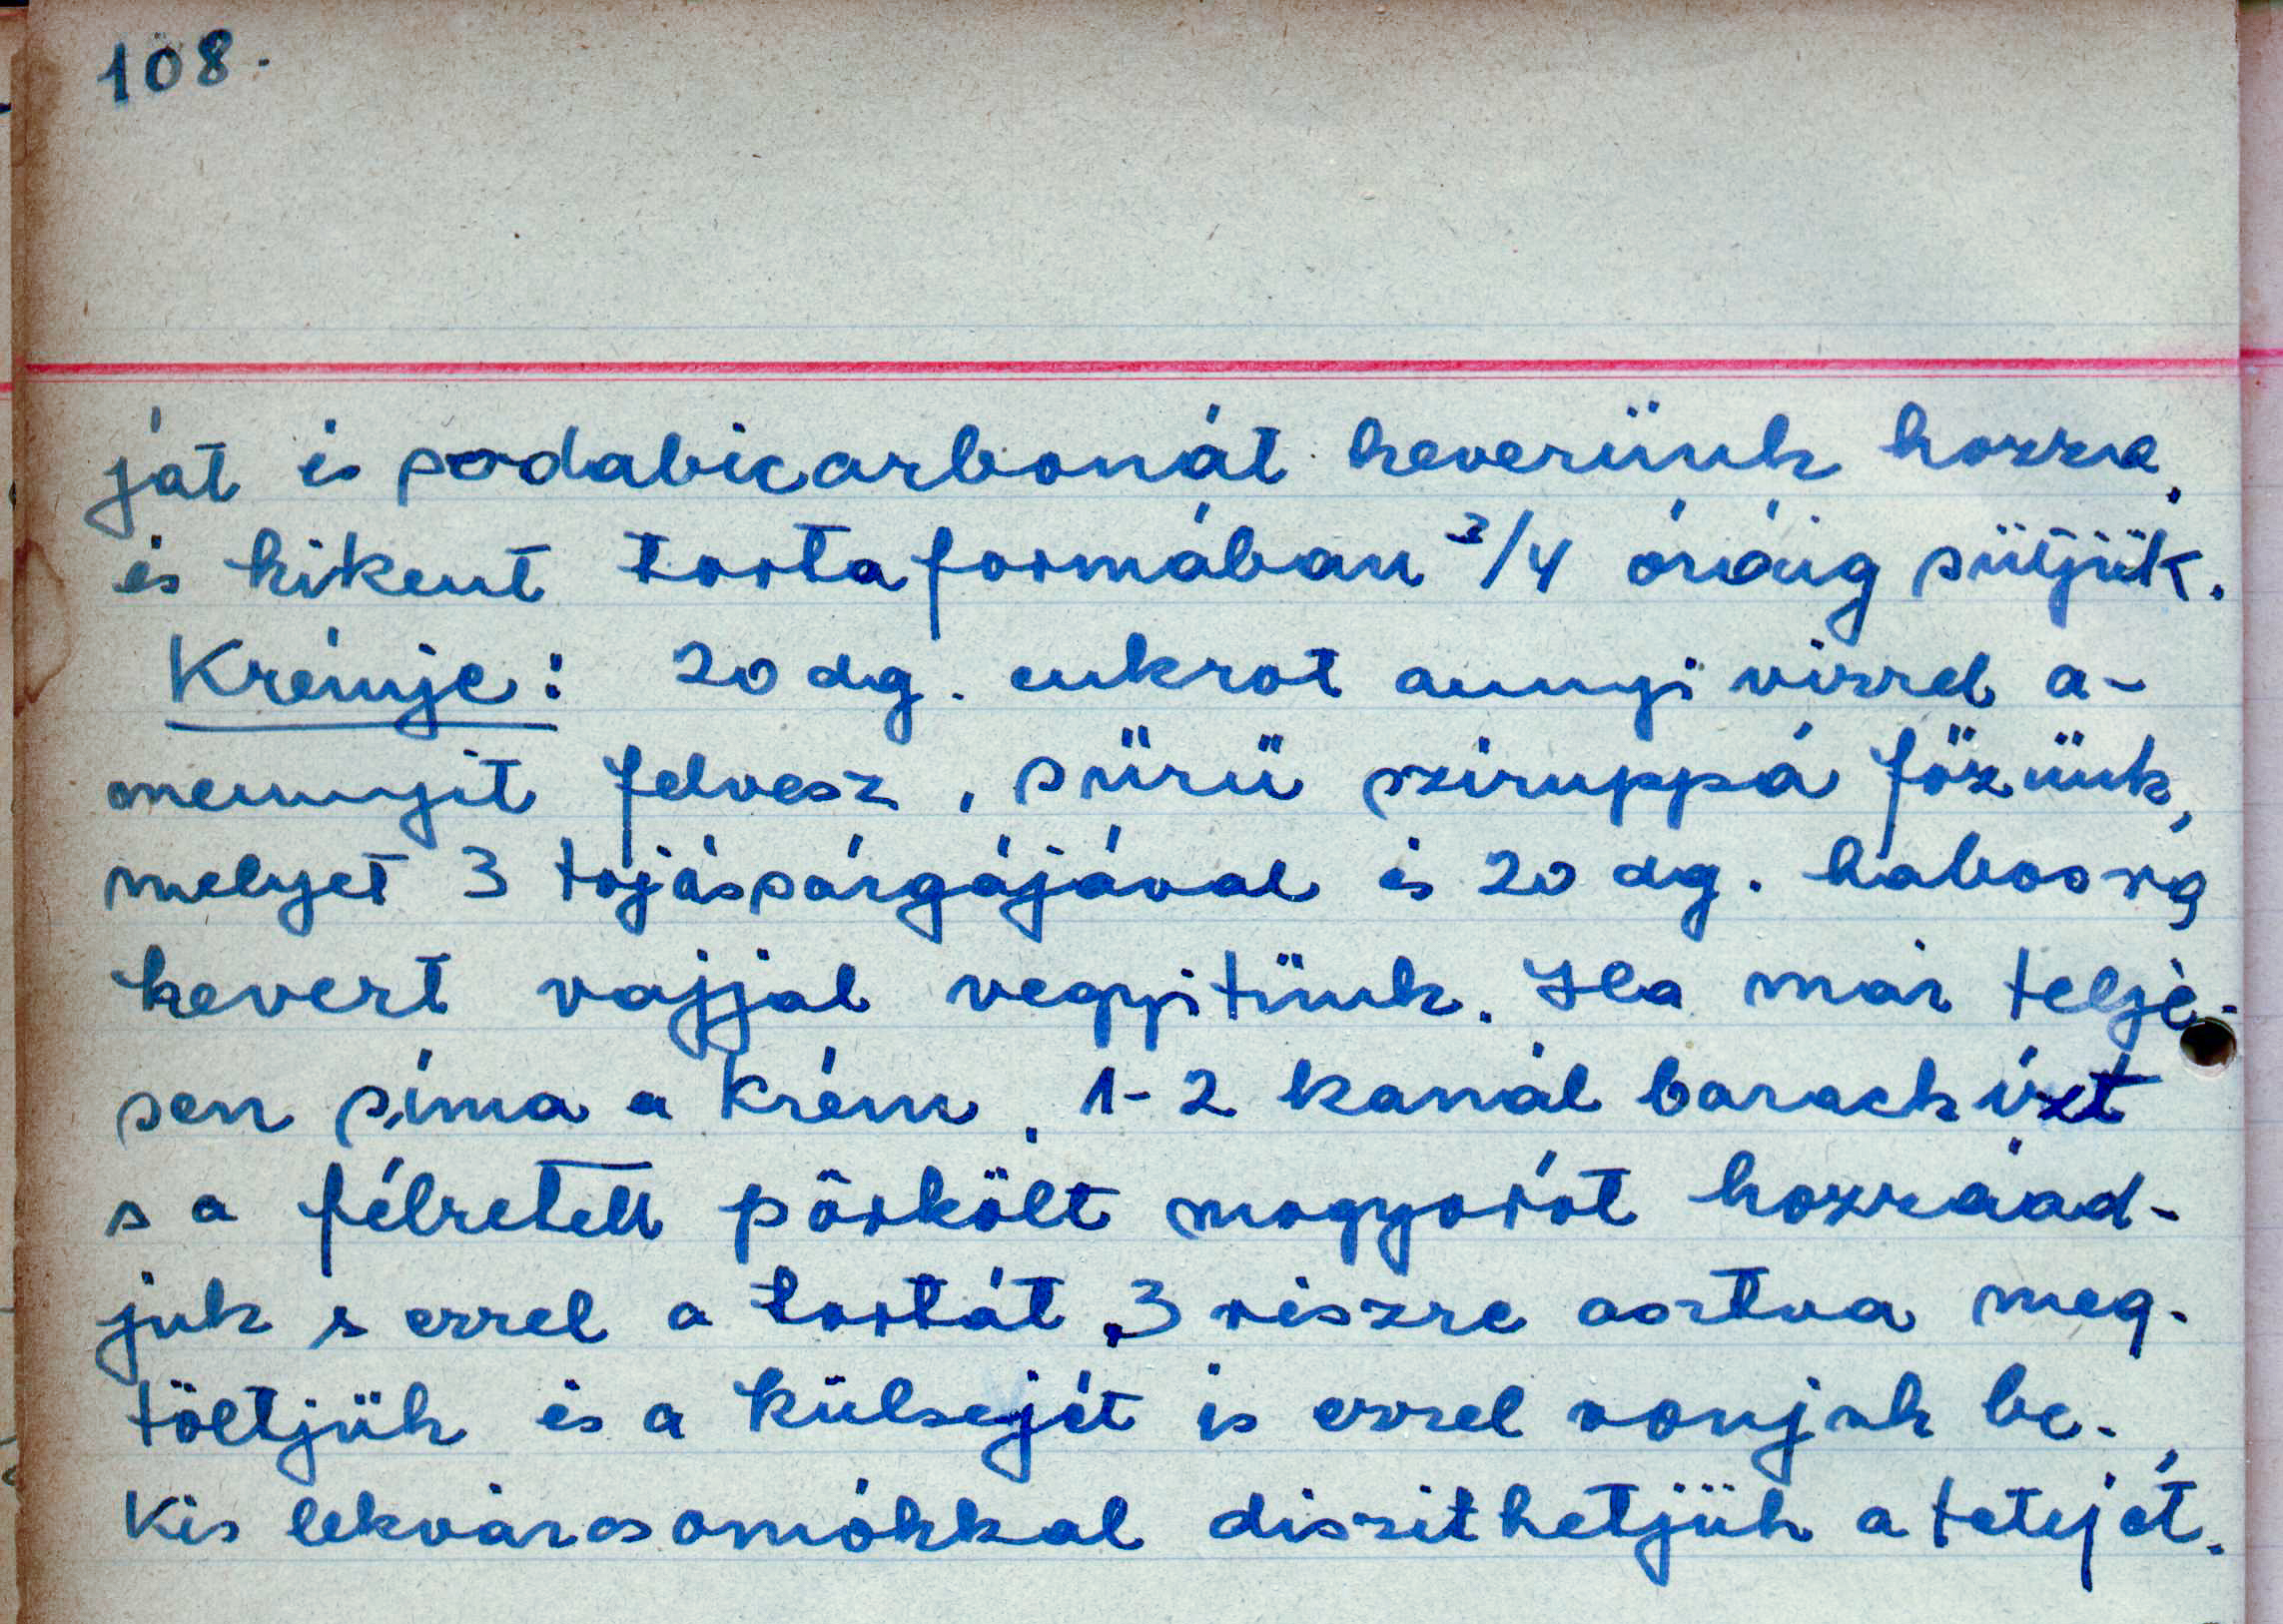 108.
ját és sodabicarbonát keverünk hozzá,
és kikent tortaformában 3/4 óráig sütjük.
Krémje: 20 dg. cukrot annyi vizzel a-
mennyit felvesz, sürü sziruppá főzünk,
melyet 3 tojássárgájával és 20 dg. habosra
kevert vajjal vegyitünk. Ha már telje-
sen síma a krém, 1-2 kanál barackízt
s a félretett pörkölt mogyorót hozzáad-
juk s ezzel a tortát, 3 részre osztva meg-
töltjük és a külsejét is ezzel vonjuk be.
Kis lekvárcsomókkal diszithetjük a tetejét.